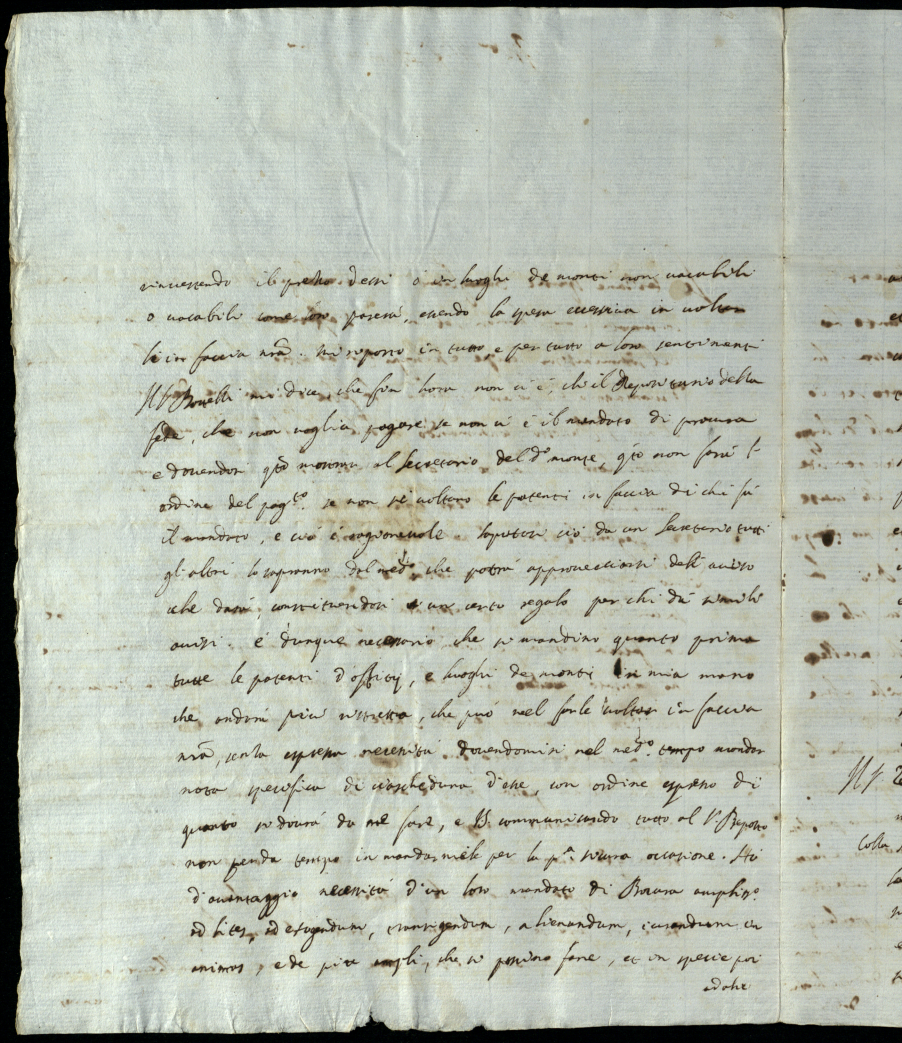 rinvestendo il prezzo d'essi ò in luoghi de monti non vacabili
o vacabili come loro parerà, essendo la spesa eccessiva in voltar
le in faccia nr̃a. mi riporto in tutto, e per tutto a loro sentimenti
mi dice, che fin hora non vi è, ch'il Depositario della
fede, che non voglia pagare se non vi è il mandato di procura
e dovendosi q͂to mostrar al Secretario del d.º monte, q͂to non farà l'
ordine del pag.to se non si voltano le patenti in faccia di chi fà
il mandato, e ciò è ragionevole. saputosi ciò da un Secretario tutti
gl'altri lo sapranno dal med.º che potrà approvecciarsi dell'aviso
che darà, constituendosi un certo regalo per chi dà simili
avisi. è dunque necessario che si mandino quanto prima
tutte le patenti d'offitij, e luoghi de monti in mia mano
che andrà più ristretta, che può nel farle voltar in faccia
nr̃a, senza espressa necessità dovendomisi nel med.º tempo mandar
nota specifica di ciascheduna d'esse, con ordine espresso di
quanto si dovrà da me fare, e communicando tutto al
non perda tempo in mandarmele per la p.a sicura occasione. Hò
d'avantaggio necessità d'un loro mandato di Procura ampliss.º
ad lites, ad exigendum, transigendum, alienandum, iurandum in
animas, e de più ampli, che si possino fare, et in specie poi
adohe